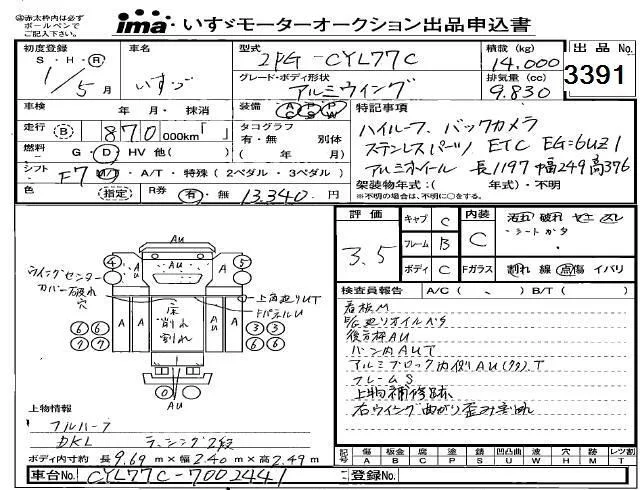 赤太枠内は必ず
ボールペンで
ご記入下さい。
ima いすゞモーターオークション出品申込書
初度登録 車名 型式 積載(kg) 出品No.
S・H・R 2PG-CYL77C 14,000 3391
1/5月 いすゞ グレード・ボディ形状 排気量(cc)
アルミウイング 9.830
車検 年 月・抹消 装備 特記事項
走行 B 870 000km「 」 タコグラフ ハイルーフ. バックカメラ
有・無 別体 ステンレスパーツ ETC EG=6UZ1
燃料 G・D・HV 他( ) ( 年 月) アルミホイール 長1197 幅249 高376
シフト F7 M/T・A/T・特殊(2ペダル・3ペダル) 架装物年式:( 年式)・不明
色 (指定) R券 有・無 13,340.円 ※不明の場合は、不明に○をする。
評価 キャブ C 内装 汚れ 破れ ヤエ スレ
3.5 フレーム B C ・シートカタ
ボディ C Fガラス 割れ 線 点傷 イバリ
検査員報告 A/C( 、 ) B/T( )
看板M
E/G廻りオイルベタ
後方枠AU
バン内AUT
アルミブロック内側AU(クタ).T
フレームS
上物補修跡
右ウイング曲がり歪み
AU
4 5
ウイングセンター
カバー破れ
穴
上角廻りUT
FパネルU
A A A A
床
削れ
割れ
6 6 3 3
7 7 6 6
0
AU
上物情報
フルハーフ
DKL ラッシング2段
ボディ内寸約 長9.69m×幅2.40m×高2.49m
記号 傷A 板金B 腐C 塗P 錆S 凹凸曲U 波W 穴H 跡M レツ割T
車台No. CYL77C-7002441 登録No.